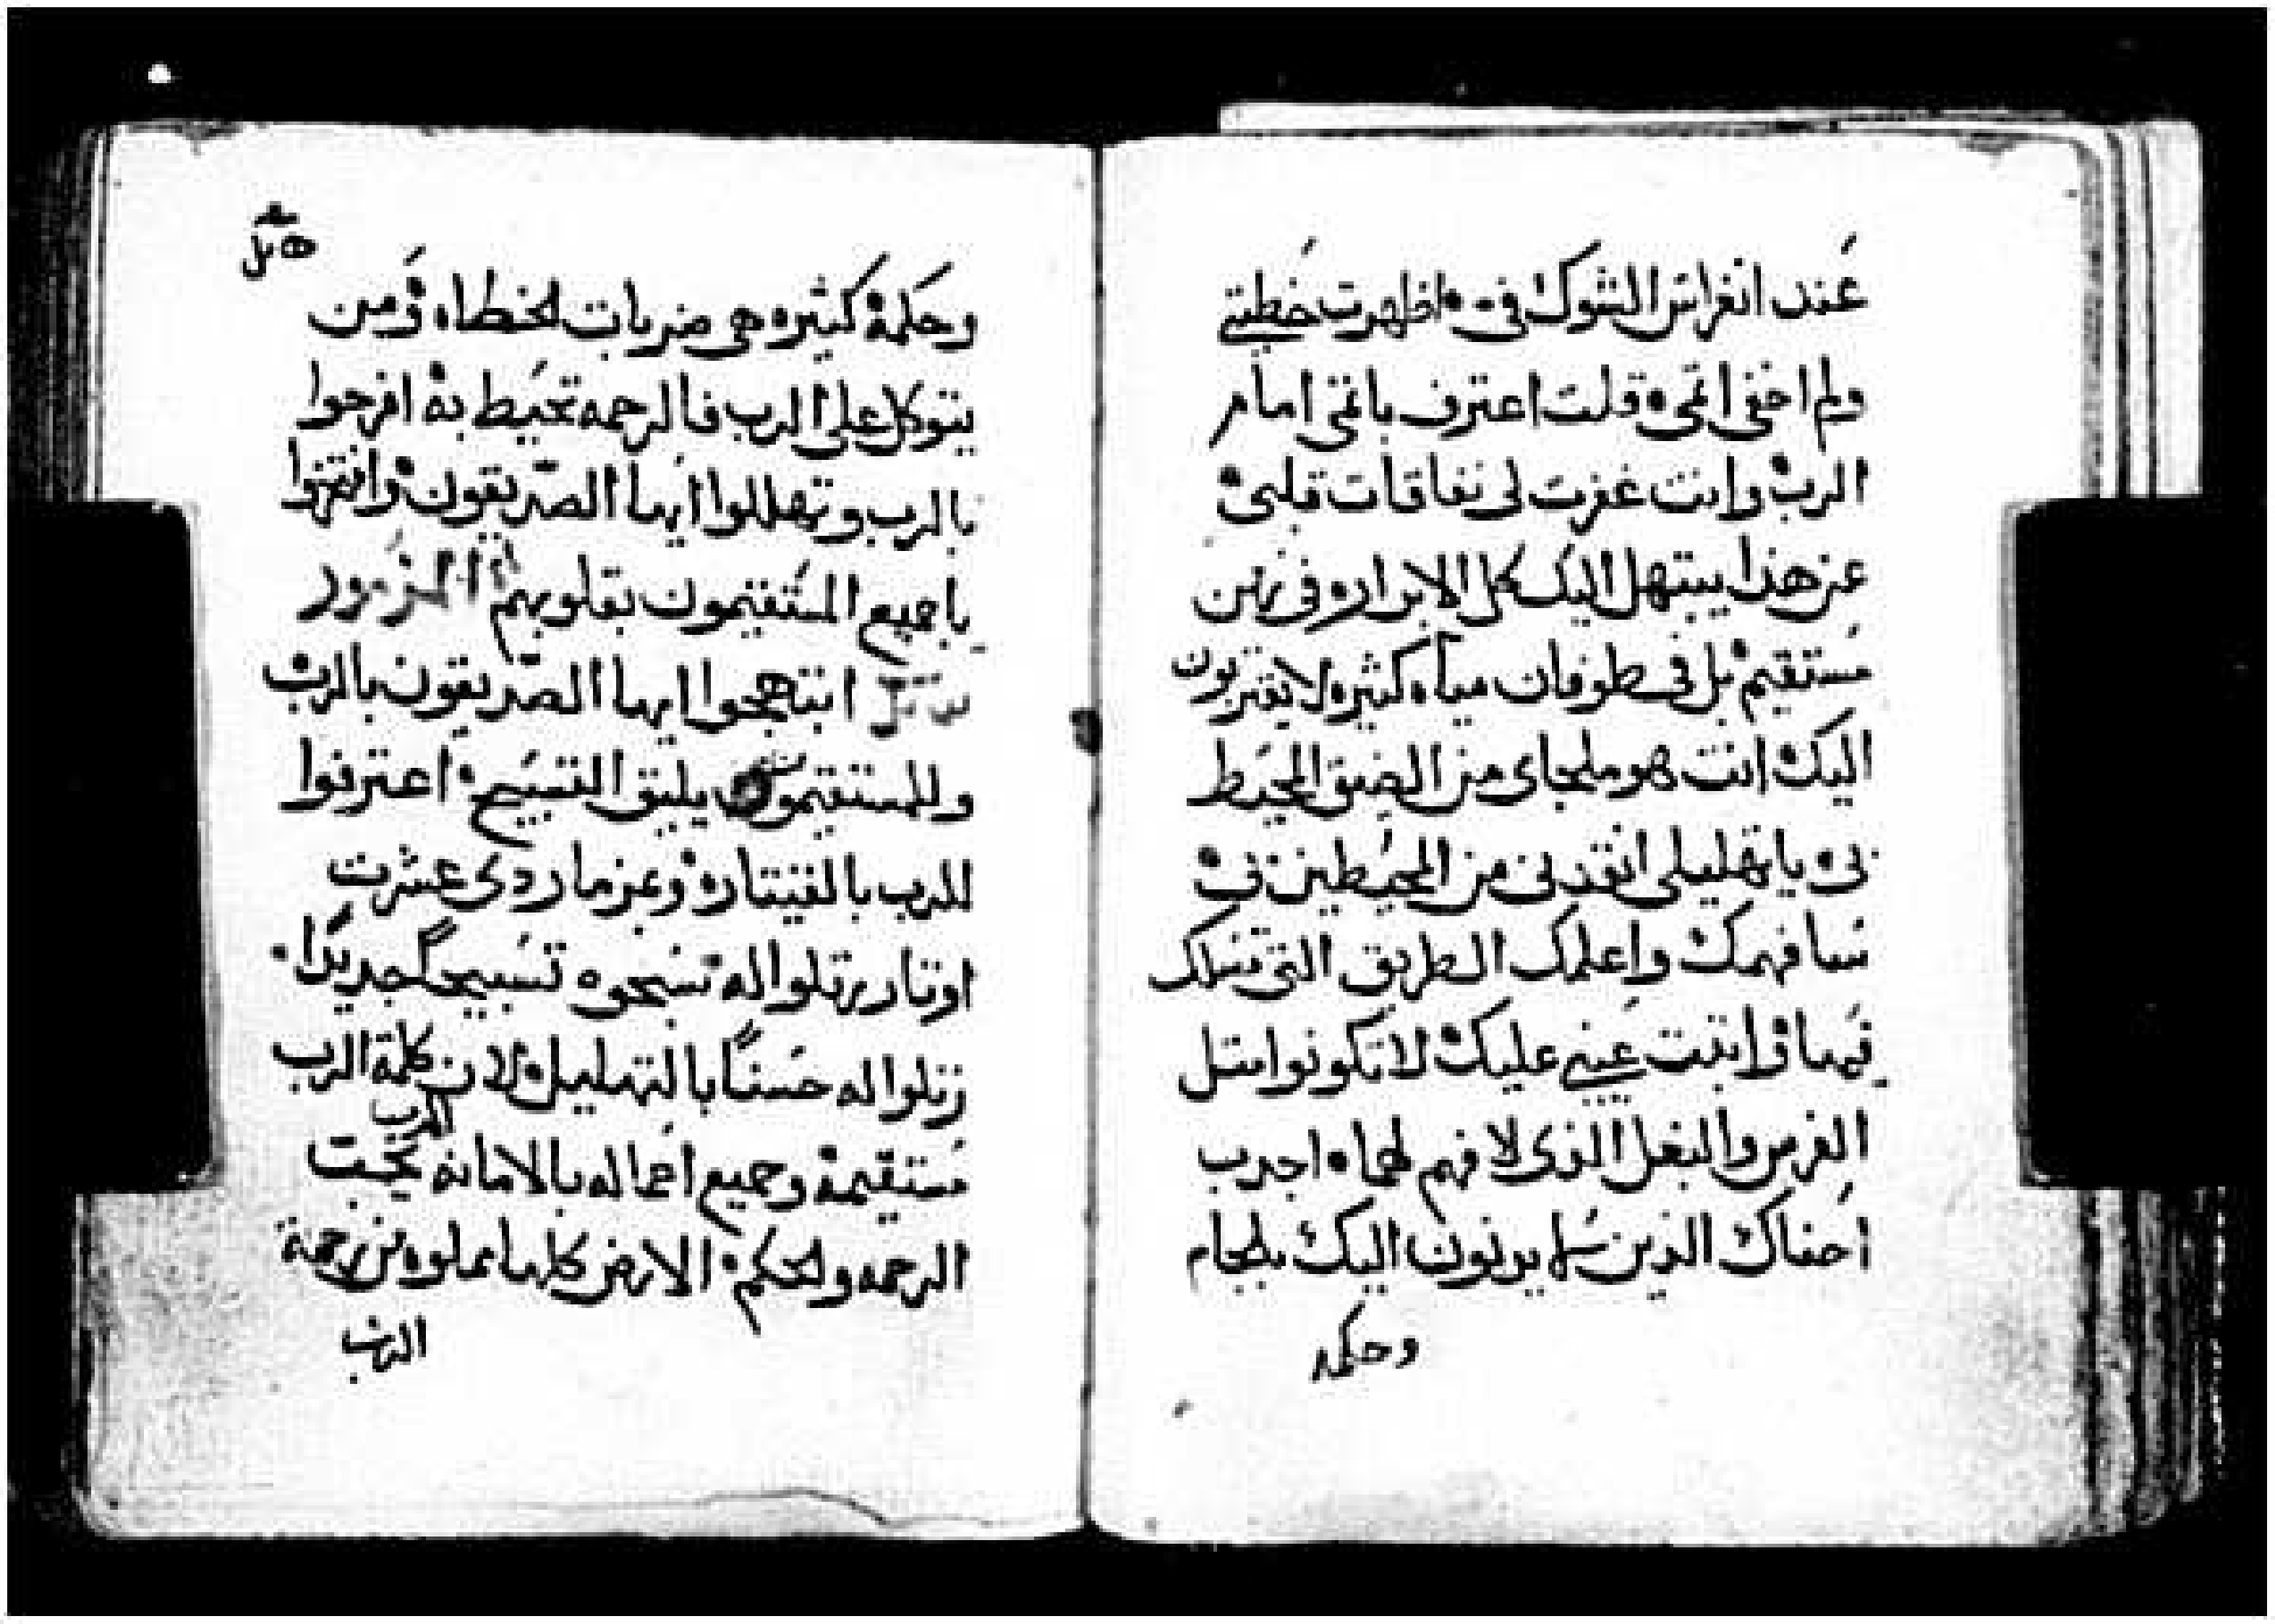 عند انغراس الشوك في اظهرت خطيتي
ولم اخفى اثمي قلت اعترف باثمي امام
الرب وانت غفرت لى نفاقات قلبي
عن هذا يبتهل اليك كل الابرار في زمن
مستقيم بل في طوفان مياه كثيره لا يقتربون
اليك انت هو ملجاى من الضيق المحيط
بي يا تهليلى انقدنى من المحيطين بي
سافهمك واعلمك الطريق التى تسلك
فيها واثبت عينى عليك لا تكونوا متل
الفرس والبغل الذى لا فهم لهما اجدب
احناك الذين لم يدنون اليك بلجام
وحكمه
وحكمة كثيره هى ضربات الخطاه ومن
يتوكل على الرب فالرحمه تحيط به افرحوا
بالرب وتهللوا ايها الصديقون وافتخروا
ياجميع المستقيمون بقلوبهم المزمور
ابتهجوا ايها الصديقون بالرب
وللمستقيمون يليق التسبيح اعترفوا
للرب بالقيتاره وعزمار دى عشرت
اوتار رتلوا له سبحوه تسبيحاً جديداً
رتلوا له حسناً بالتهليل لان كلمة الرب
مستقيمة وجميع اعماله بالامانه يحب
الرب
الرحمه والحكم الارض كلها مملوه من رحمة
الرب